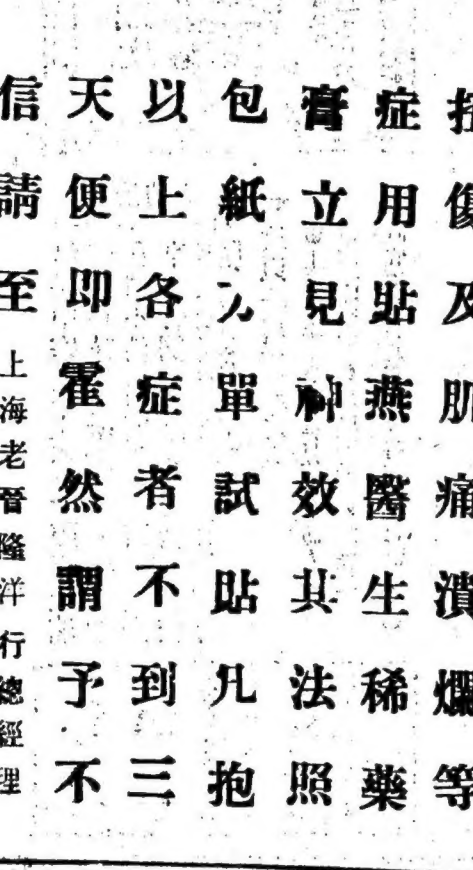 扭傷及肌痛潰爛等
症用貼燕醫生稀藥
膏立見神效其法照
包紙方單試貼凡抱
以上各症者不到三
天便即霍然謂予不
信請至上海老晉隆洋行總經理